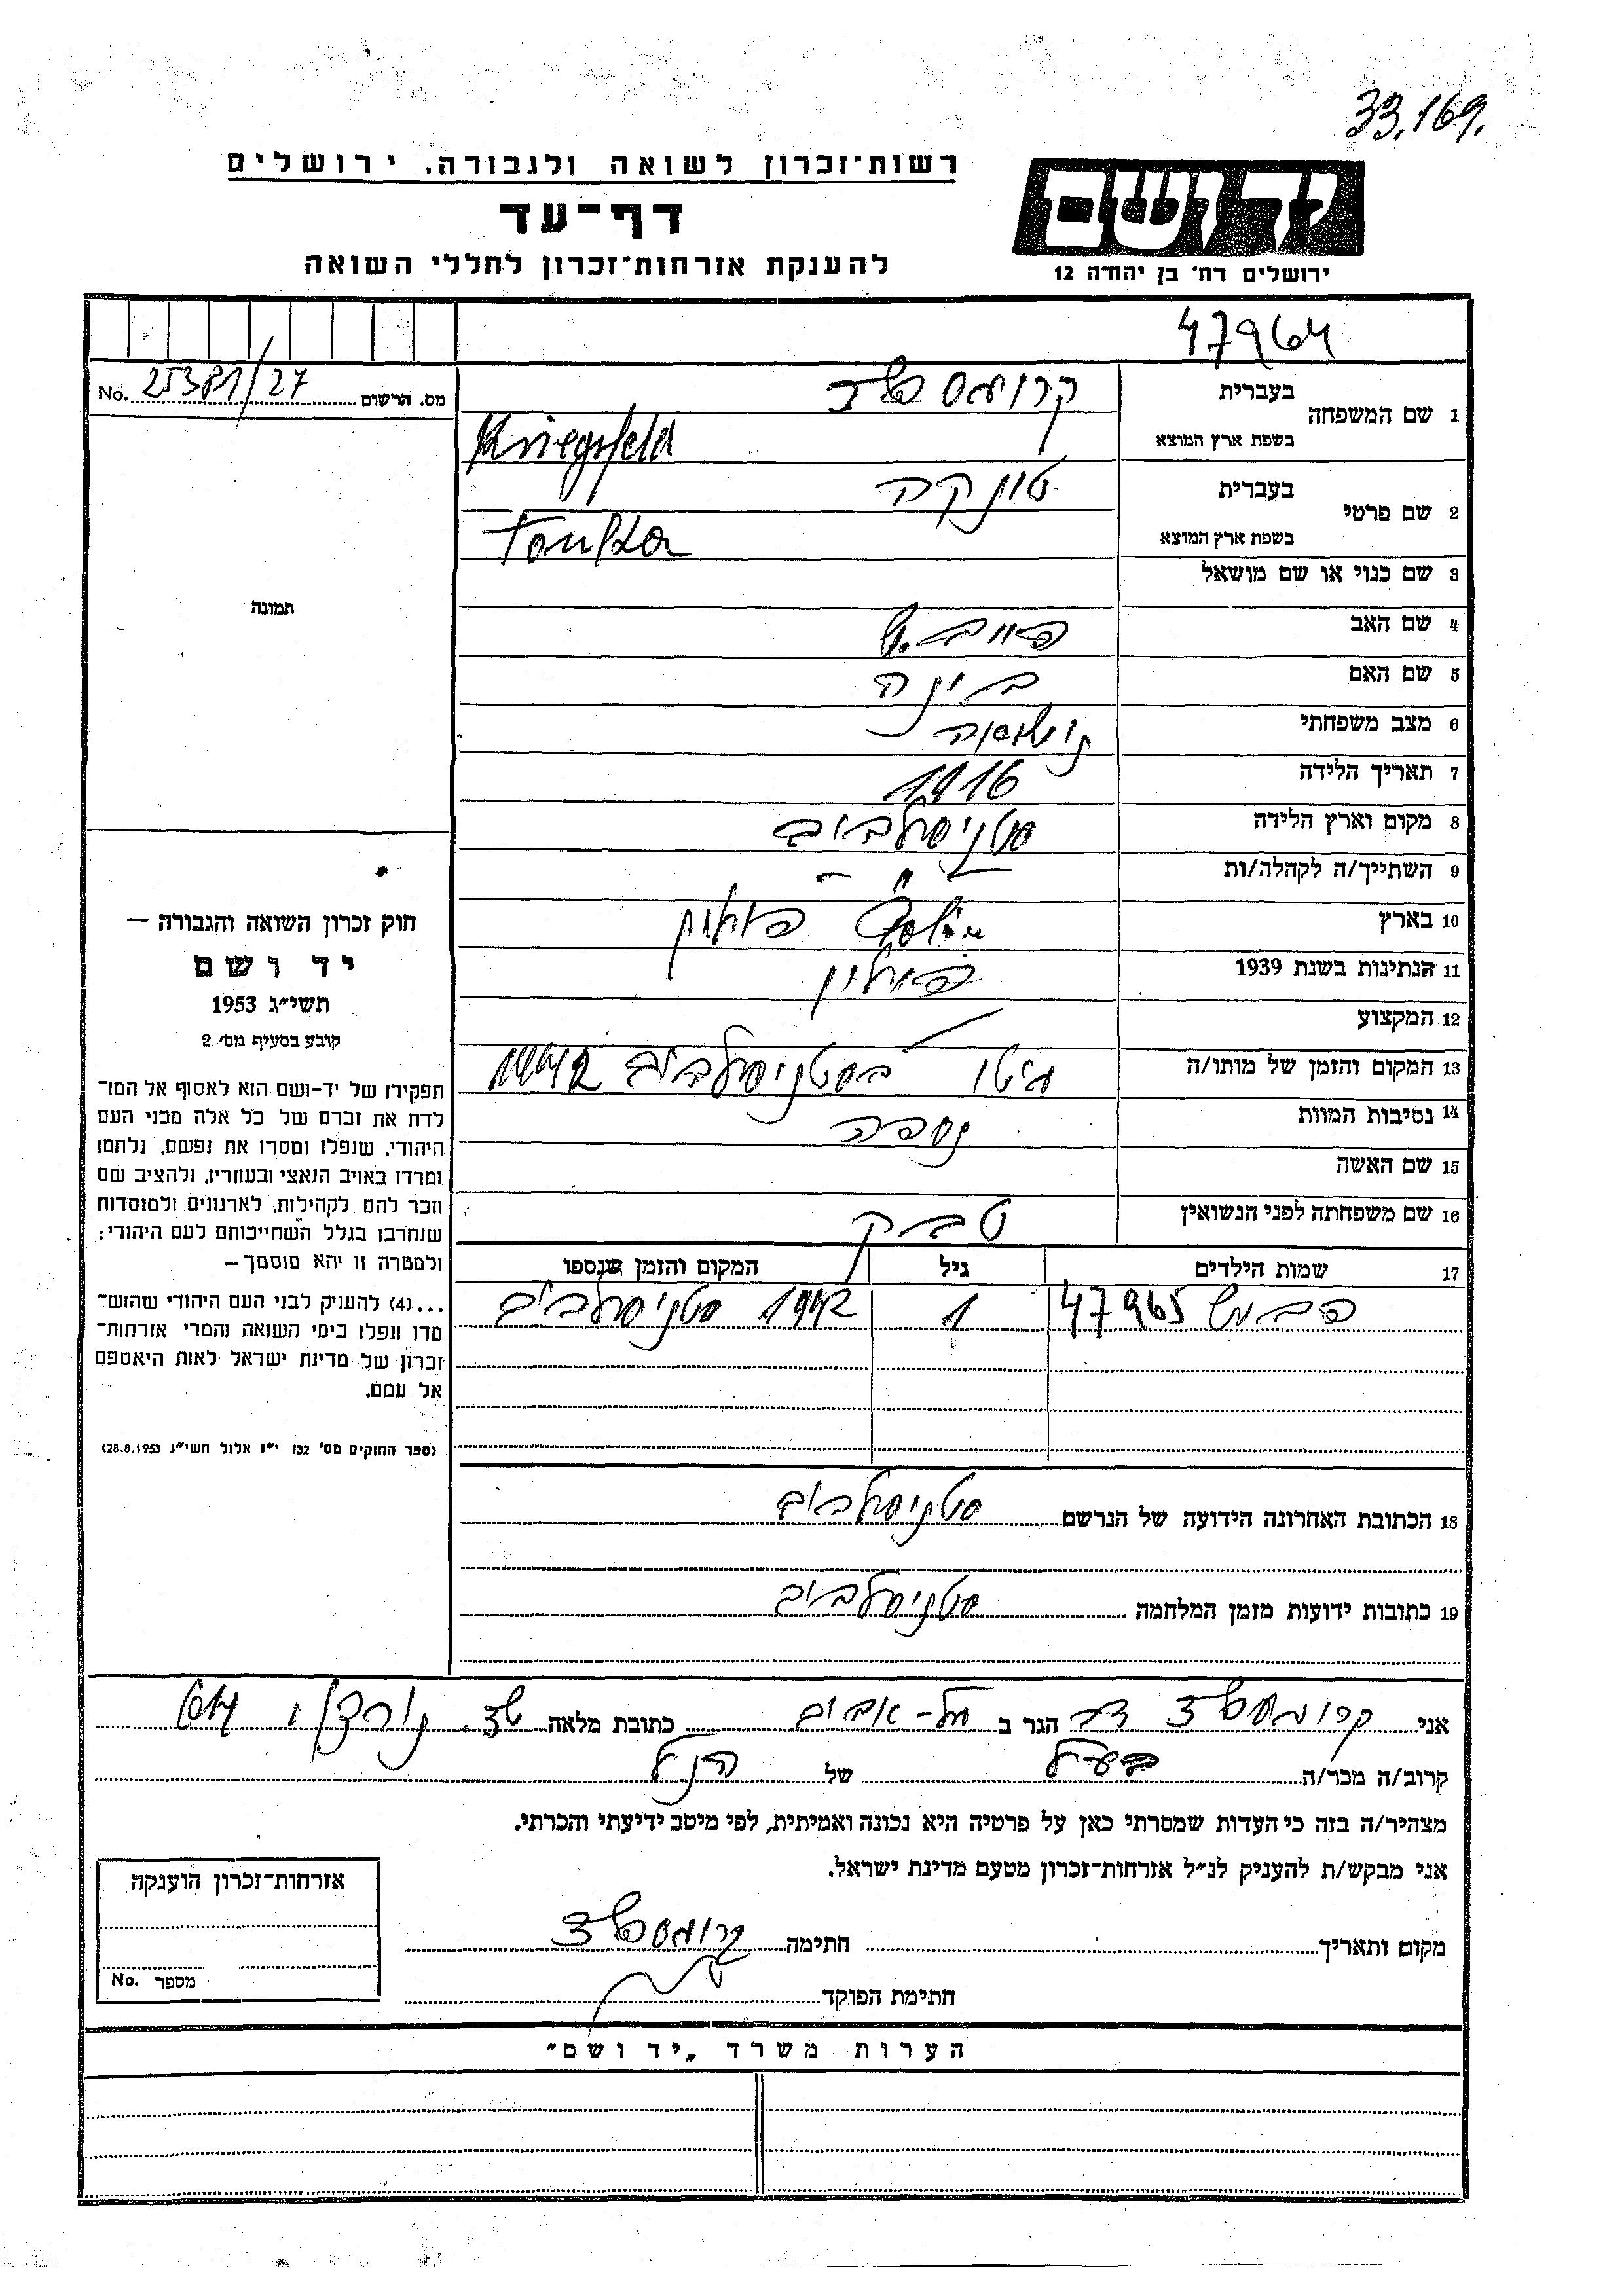 33,169.
רשות־זכרון לשואה ולגבורה, ירושלים
דף־עד
להענקת אזרחות־זכרון לחללי השואה
יד ושם
ירושלים רח׳ בן יהודה 12
47964
מס. הרשום 25381/27 No.
1 שם המשפחה
בעברית קריגספלד
בשפת ארץ המוצא Kriegsfeld
2 שם פרטי
בעברית טונקה
בשפת ארץ המוצא Tonka
3 שם כנוי או שם מושאל
4 שם האב
5 שם האם בינה
6 מצב משפחתי נשואה
7 תאריך הלידה 1916
8 מקום וארץ הלידה סטניסלבוב
9 השתייך/ה לקהלה/ות — " —
10 בארץ פולין
11 הנתינות בשנת 1939 פולין
12 המקצוע
13 המקום והזמן של מותו/ה גיטו בסטניסלבוב 1942
14 נסיבות המוות נספה
15 שם האשה
16 שם משפחתה לפני הנשואין טבק
17 שמות הילדים גיל המקום והזמן שנספו
47965 1 סטניסלבוב 1942
18 הכתובת האחרונה הידועה של הנרשם סטניסלבוב
19 כתובות ידועות מזמן המלחמה סטניסלבוב
תמונה
חוק זכרון השואה והגבורה —
יד ושם
תשי״ג 1953
קובע בסעיף מס׳ 2
תפקידו של יד־ושם הוא לאסוף אל המו־
לדת את זכרם של כל אלה מבני העם
היהודי, שנפלו ומסרו את נפשם, נלחמו
ומרדו באויב הנאצי ובעוזריו, ולהציב שם
וזכר להם לקהילות, לארגונים ולמוסדות
שנחרבו בגלל השתייכותם לעם היהודי;
ולמטרה זו יהא מוסמך —
...(4) להעניק לבני העם היהודי שהוש־
מדו ונפלו בימי השואה והמרי אזרחות־
זכרון של מדינת ישראל לאות היאספם
אל עמם.
(ספר החוקים מס׳ 132 י״ז אלול תשי״ג 28.8.1953)
אני קריגספלד דב הגר ב תל-אביב כתובת מלאה שד. נורדוי
קרוב/ה מכר/ה בעל של הנ״ל
מצהיר/ה בזה כי העדות שמסרתי כאן על פרטיה היא נכונה ואמיתית, לפי מיטב ידיעתי והכרתי.
אני מבקש/ת להעניק לנ״ל אזרחות־זכרון מטעם מדינת ישראל.
מקום ותאריך חתימה קריגספלד
חתימת הפוקד
אזרחות־זכרון הוענקה
מספר No.
הערות משרד „יד ושם״